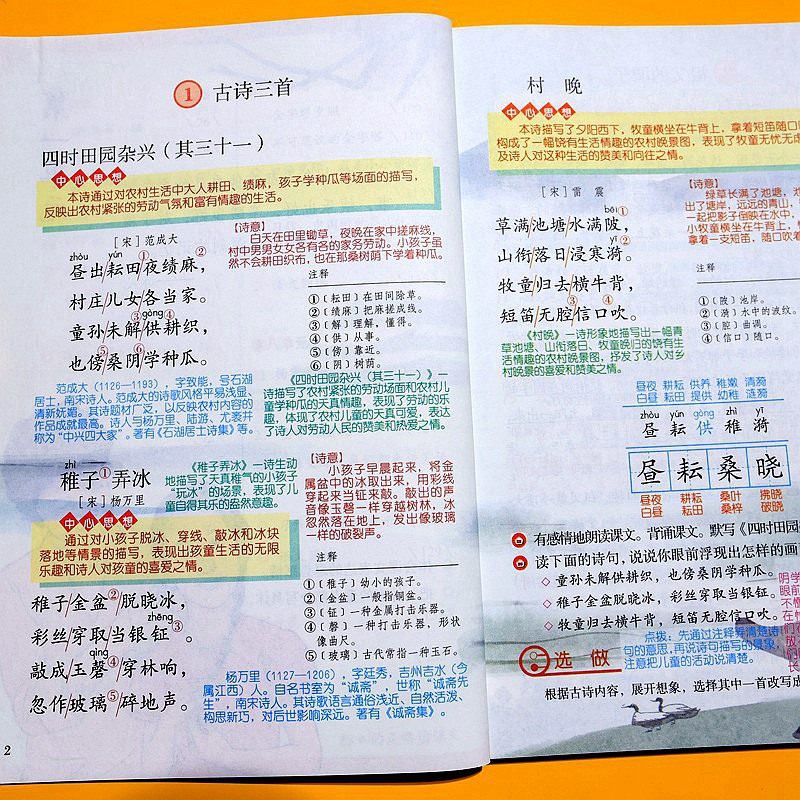 1 古诗三首
四时田园杂兴（其三十一）
中心思想
本诗通过对农村生活中大人耕田、绩麻，孩子学种瓜等场面的描写，
反映出农村紧张的劳动气氛和富有情趣的生活。
［宋］范成大
zhòu yún ① ②
昼出/耘田/夜绩麻，
村庄/儿女/各当家。
③gòng④
童孙/未解/供耕织，
⑤ ⑥
也傍/桑阴/学种瓜。
【诗意】
白天在田里锄草，夜晚在家中搓麻线，
村中男男女女各有各的家务劳动。小孩子虽
然不会耕田织布，也在那桑树荫下学着种瓜。
注释
①〔耘田〕在田间除草。
②〔绩麻〕把麻搓成线。
③〔解〕理解，懂得。
④〔供〕从事。
⑤〔傍〕靠近。
⑥〔阴〕树荫。
范成大（1126—1193），字致能，号石湖
居士，南宋诗人。范成大的诗歌风格平易浅显、
清新妩媚。其诗题材广泛，以反映农村内容的
作品成就最高。诗人与杨万里、陆游、尤袤并
称为“中兴四大家”。著有《石湖居士诗集》等。
《四时田园杂兴（其三十一）》一
诗描写了农村紧张的劳动场面和农村儿
童学种瓜的天真情趣，表现了劳动的乐
趣，体现了农村儿童的天真可爱，表达
了诗人对劳动人民的赞美和热爱之情。
zhì
稚子①弄冰
［宋］杨万里
《稚子弄冰》一诗生动
地描写了天真稚气的小孩子
“玩冰”的场景，表现了儿
童自得其乐的盎然意趣。
中心思想
通过对小孩子脱冰、穿线、敲冰和冰块
落地等情景的描写，表现出孩童生活的无限
乐趣和诗人对孩童的喜爱之情。
稚子/金盆②/脱晓冰，
zhēng
彩丝/穿取/当银钲③。
qìng
敲成/玉磬④/穿林响，
忽作/玻璃⑤/碎地声。
【诗意】
小孩子早晨起来，将金
属盆中的冰取出来，用彩线
穿起来当钲来敲。敲出的声
音像玉磬一样穿越树林，冰
忽然落在地上，发出像玻璃
一样的破裂声。
注释
①〔稚子〕幼小的孩子。
②〔金盆〕一般指铜盆。
③〔钲〕一种金属打击乐器。
④〔磬〕一种打击乐器，形状
像曲尺。
⑤〔玻璃〕古代常指一种玉石。
杨万里（1127—1206），字廷秀，吉州吉水（今
属江西）人。自名书室为“诚斋”，世称“诚斋先
生”，南宋诗人。其诗歌语言通俗浅近、自然活泼、
构思新巧，对后世影响深远。著有《诚斋集》。
2
村 晚
中心思想
本诗描写了夕阳西下，牧童横坐在牛背上，拿着短笛随口
构成了一幅饶有生活情趣的农村晚景图，表现了牧童无忧无虑
及诗人对这种生活的赞美和向往之情。
［宋］雷 震
bēi①
草满/池塘/水满陂，
yī②
山衔/落日/浸寒漪。
牧童/归去/横牛背，
③ ④
短笛/无腔/信口吹。
【诗意】
绿草长满了池塘，池
出了塘岸，远远的青山，
一起把影子倒映在水中，
小牧童横坐在牛背上，
拿着一支短笛，随口吹着
注释
①〔陂〕池岸。
②〔漪〕水中的波纹。
③〔腔〕曲调。
④〔信口〕随口。
《村晚》一诗形象地描写出一幅青
草池塘、山衔落日、牧童晚归的饶有生
活情趣的农村晚景图，抒发了诗人对乡
村晚景的喜爱和赞美之情。
昼夜 耕耘 供养 稚嫩 清漪
白昼 耘田 提供 幼稚 涟漪
zhòu yún gòng zhì yī
昼 耘 供 稚 漪
昼 耘 桑 晓
昼夜 耕耘 桑叶 拂晓
白昼 耘田 桑梓 破晓
有感情地朗读课文。背诵课文。默写《四时田园
读下面的诗句，说说你眼前浮现出怎样的画
◇ 童孙未解供耕织，也傍桑阴学种瓜。
◇ 稚子金盆脱晓冰，彩丝穿取当银钲。
◇ 牧童归去横牛背，短笛无腔信口吹。
点拨：先通过注释弄清楚诗
句的意思，再说诗句描写的景象，
注意把儿童的活动说清楚。
选 做
根据古诗内容，展开想象，选择其中一首改写成